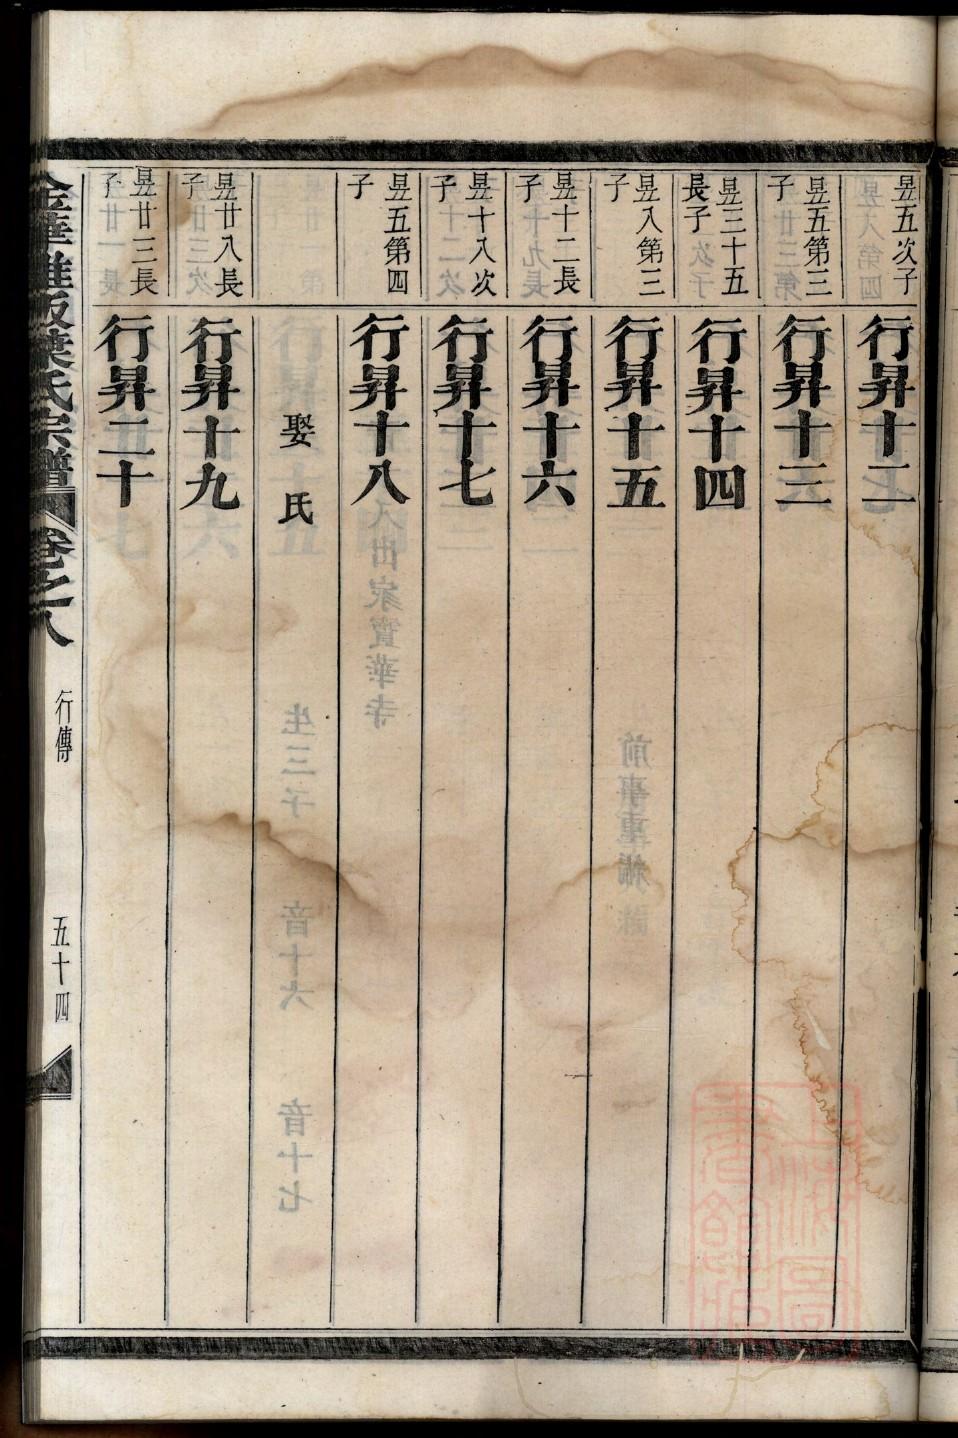 昱五次子
行昇十二
昱五第三子
行昇十三
昱三十五長子
行昇十四
昱八第三子
行昇十五
昱十二長子
行昇十六
昱十八次子
行昇十七
昱五第四子
行昇十八
娶 氏
昱廿八長子
行昇十九
昱廿三長子
行昇二十
葉氏宗譜 卷之八 行傳 五十四